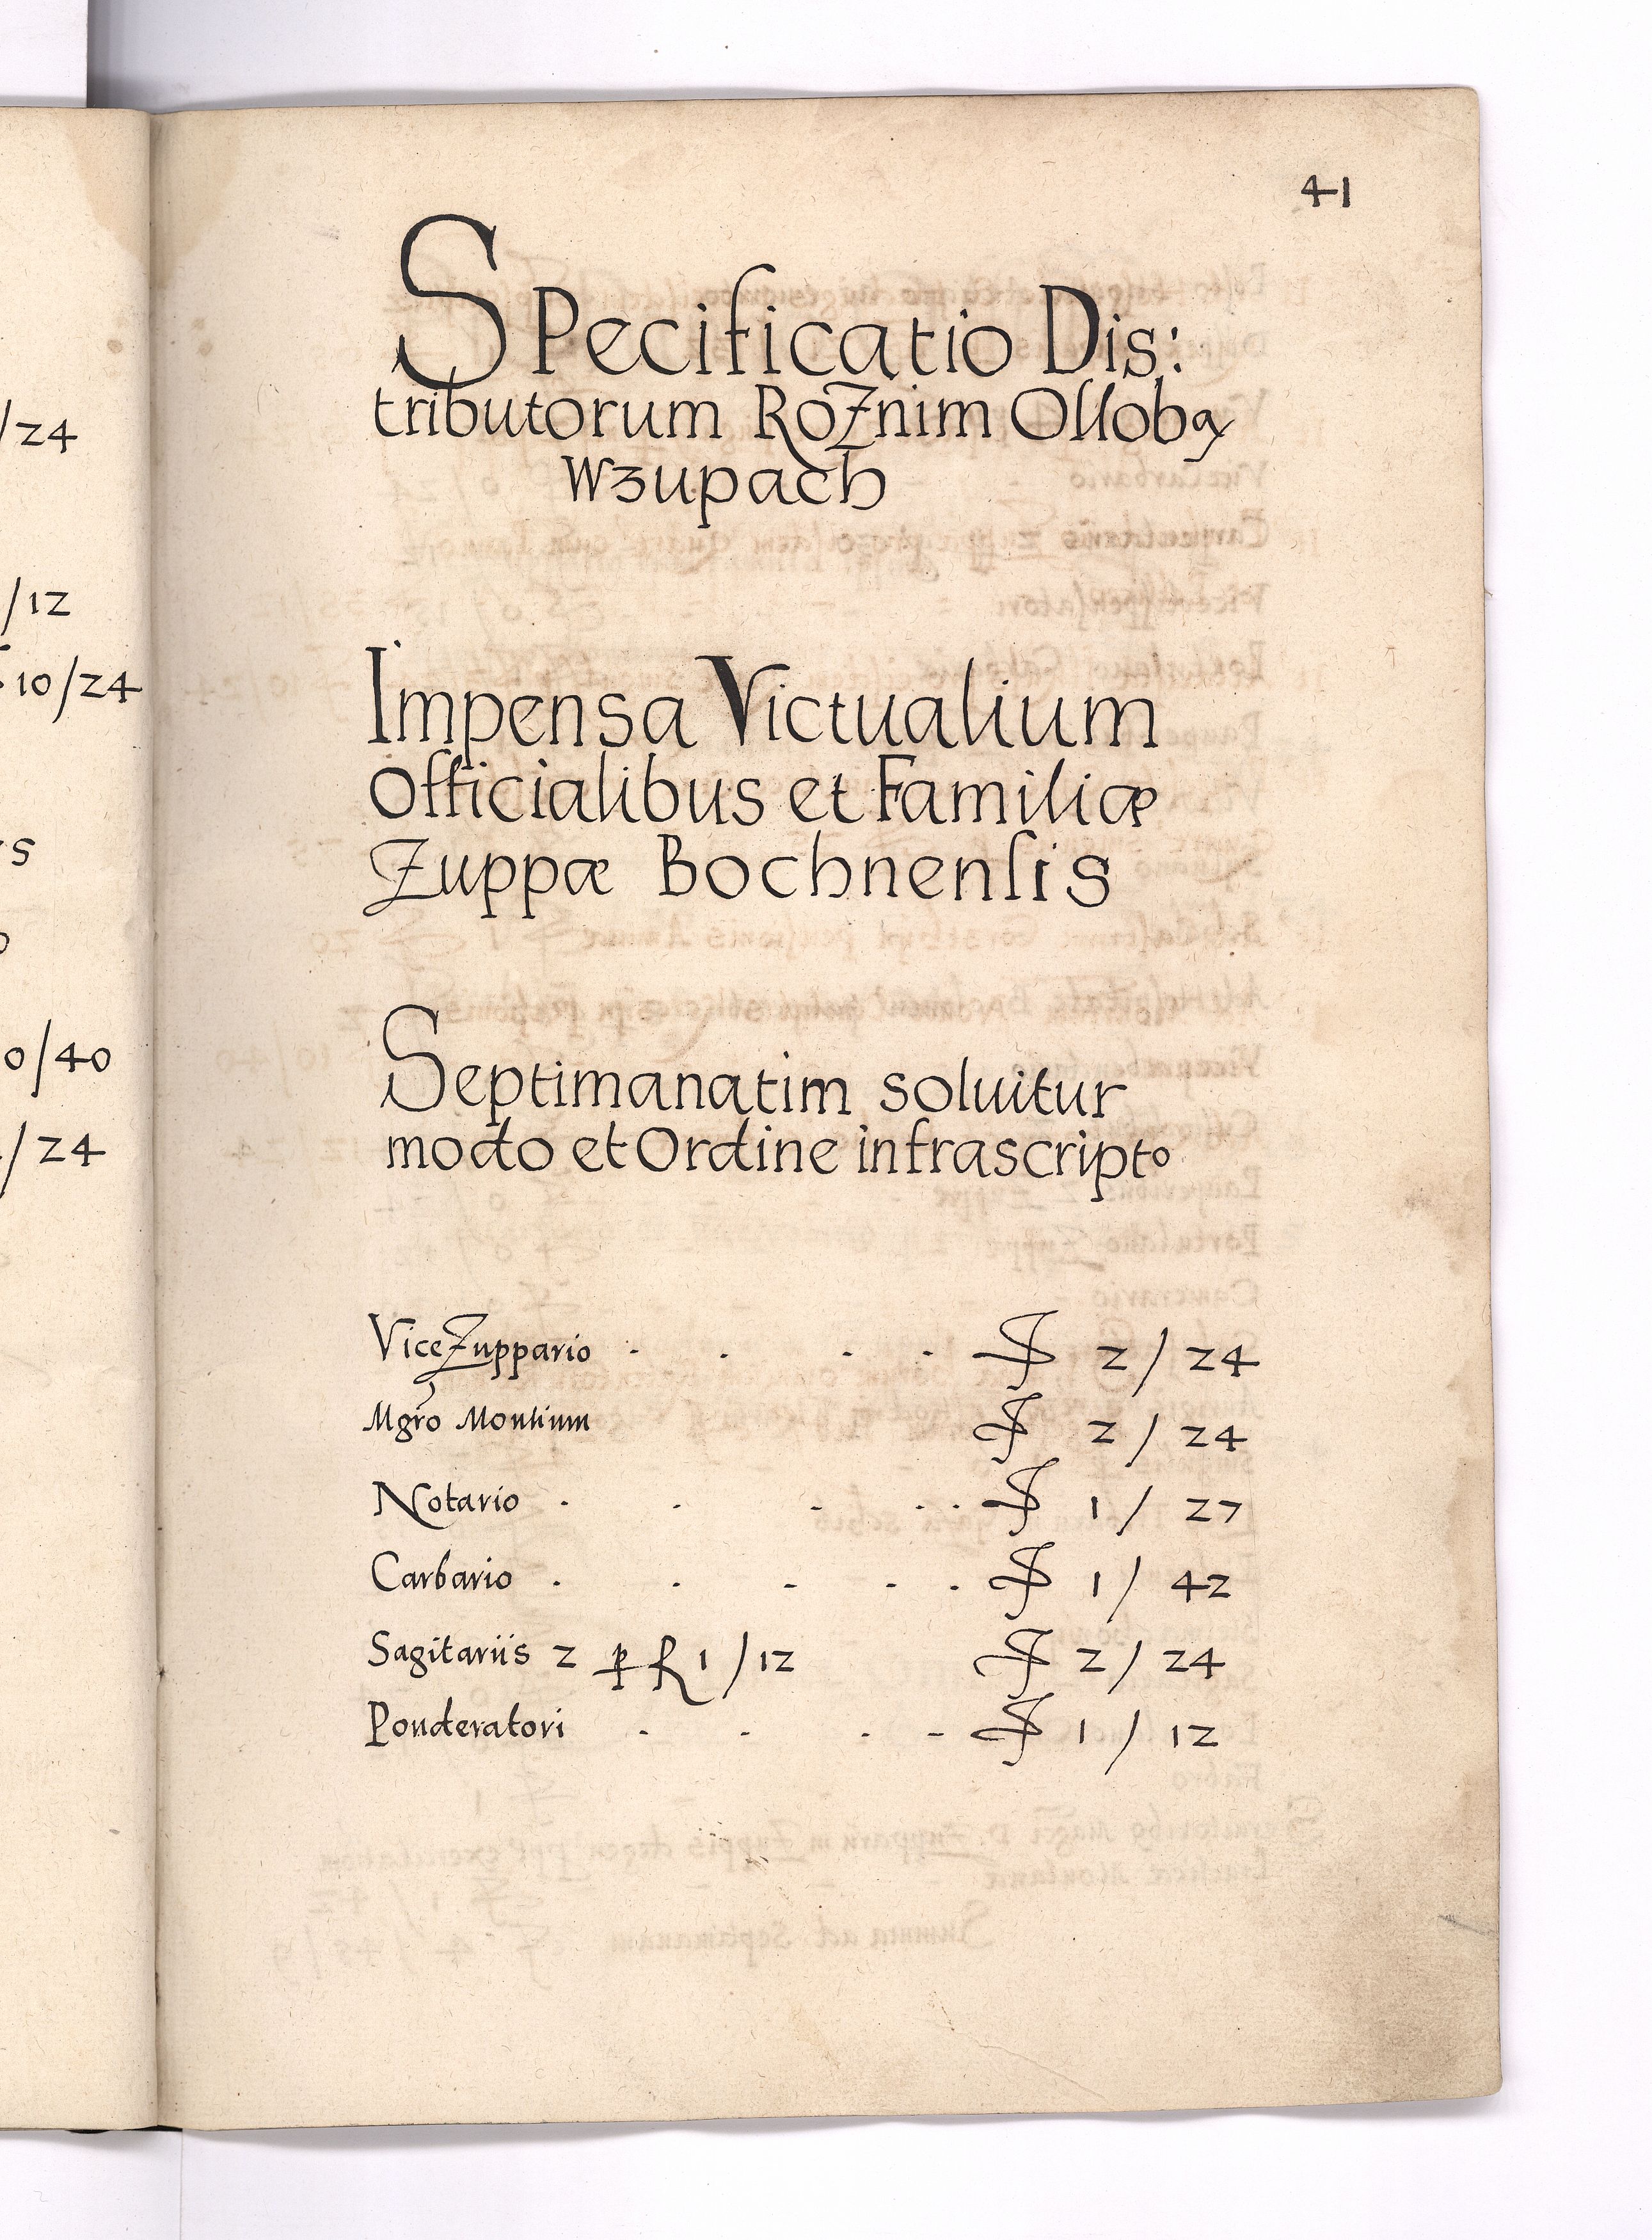 41
SPecificatio Dis:
tributorum RoZnim Ossobą
Wzupach
Impensa Victualium
Officialibus et Familiæ
Zuppæ Bochnensis
Septimanatim soluitur
modo et Ordine infrascripto
ViceZuppario . . . . F 2 / 24
Mgro Montium F 2 / 24
Notario . . . . . F 1 / 27
Carbario . . . . . F 1 / 42
Sagitariis 2 p fl 1 / 12 F 2 / 24
Ponderatori . . . - F 1 / 12
/24
/12
10/24
s
0/40
/24